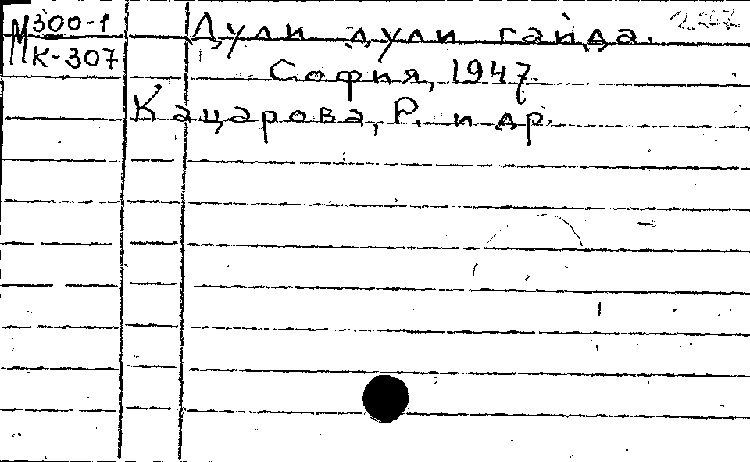 М 300-1 Дули дули гайда.
К-307 София, 1947.
Кацарова, Р. и др.